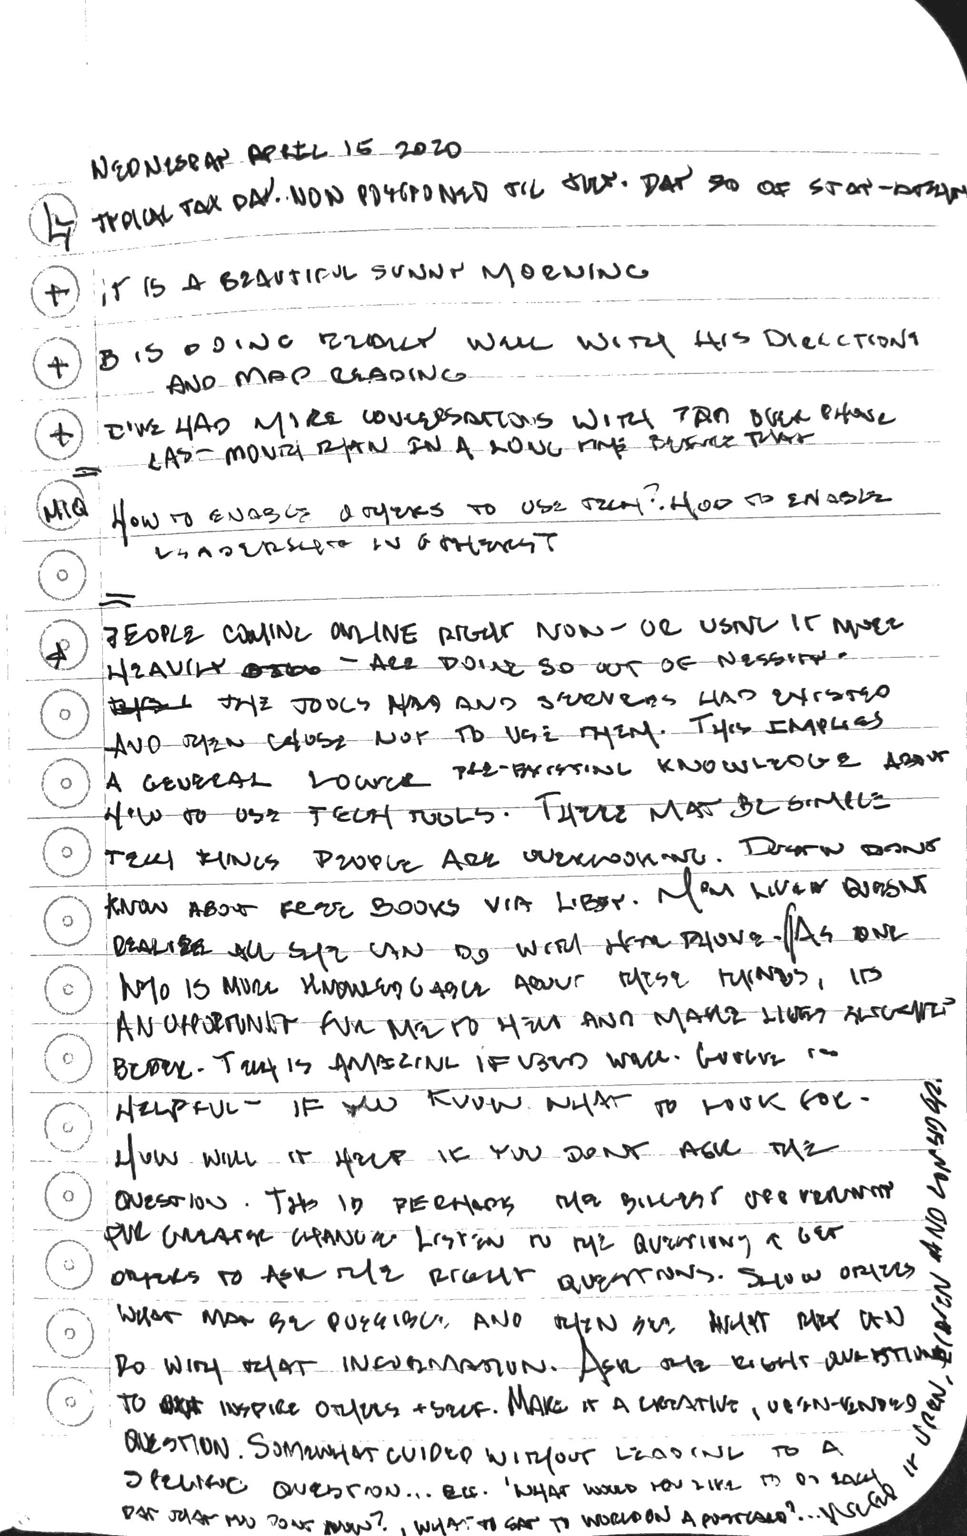 WEDNESDAY APRIL 15 2020
TYPICAL TAX DAY. NOW POSTPONED TIL JULY. DAY 30 OF STAY-AT-HOME
+ IT IS A BEAUTIFUL SUNNY MORNING
+ B IS DOING REALLY WELL WITH HIS DIRECTIONS
AND MAP READING
+ I'VE HAD MORE CONVERSATIONS WITH OVER PHONE
LAST MONTH THAN IN A LONG TIME BEFORE THAT
MIQ HOW TO ENABLE OTHERS TO USE TECH? HOW TO ENABLE
LEADERSHIP IN OTHERS?
PEOPLE COMING ONLINE RIGHT NOW - OR USING IT MORE
HEAVILY - ARE DOING SO OUT OF NESSITY.
THE TOOLS AND SERVERS HAD EXISTED
AND THEN CHOSE NOT TO USE THEM. THIS IMPLIES
A GENERAL LOWER PRE-EXISTING KNOWLEDGE ABOUT
HOW TO USE TECH TOOLS. THERE MAY BE SIMPLE
TECH THINGS PEOPLE ARE OVERLOOKING. DUSTIN DOESNT
KNOW ABOUT FREE BOOKS VIA LIBBY. MOM LIKELY DOESNT
REALIZE ALL SHE CAN DO WITH HER PHONE. AS ONE
WHO IS MORE KNOWLEDGABLE ABOUT THESE THINGS, ITS
AN OPPORTUNITY FOR ME TO HELP AND MAKE LIVES SLIGHTLY
BETTER. TECH IS AMAZING IF USED WELL. GOOGLE IS
HELPFUL - IF YOU KNOW WHAT TO LOOK FOR.
HOW WILL IT HELP IF YOU DONT ASK THE
QUESTION. THIS IS PERHAPS THE BIGGEST OPPORTUNITY
FOR GREATER CHANGE. LISTEN TO THE QUESTIONS & GET
OTHERS TO ASK THE RIGHT QUESTIONS. SHOW OTHERS
WHAT MAY BE POSSIBLE AND THEN SEE WHAT THEY CAN
DO WITH THAT INFORMATION. ASK THE RIGHT QUESTIONS
TO INSPIRE OTHERS + SELF. MAKE IT A CREATIVE, OPEN-ENDED
QUESTION. SOMEWHAT GUIDED WITHOUT LEADING TO A
SPECIFIC QUESTION... EG. 'WHAT WOULD YOU LIKE TO DO EACH
DAY THAT YOU DONT NOW?', WHAT TO SAY TO WORLD ON A POSTCARD?'...
IT OPEN, BROKEN AND CONSIDER.